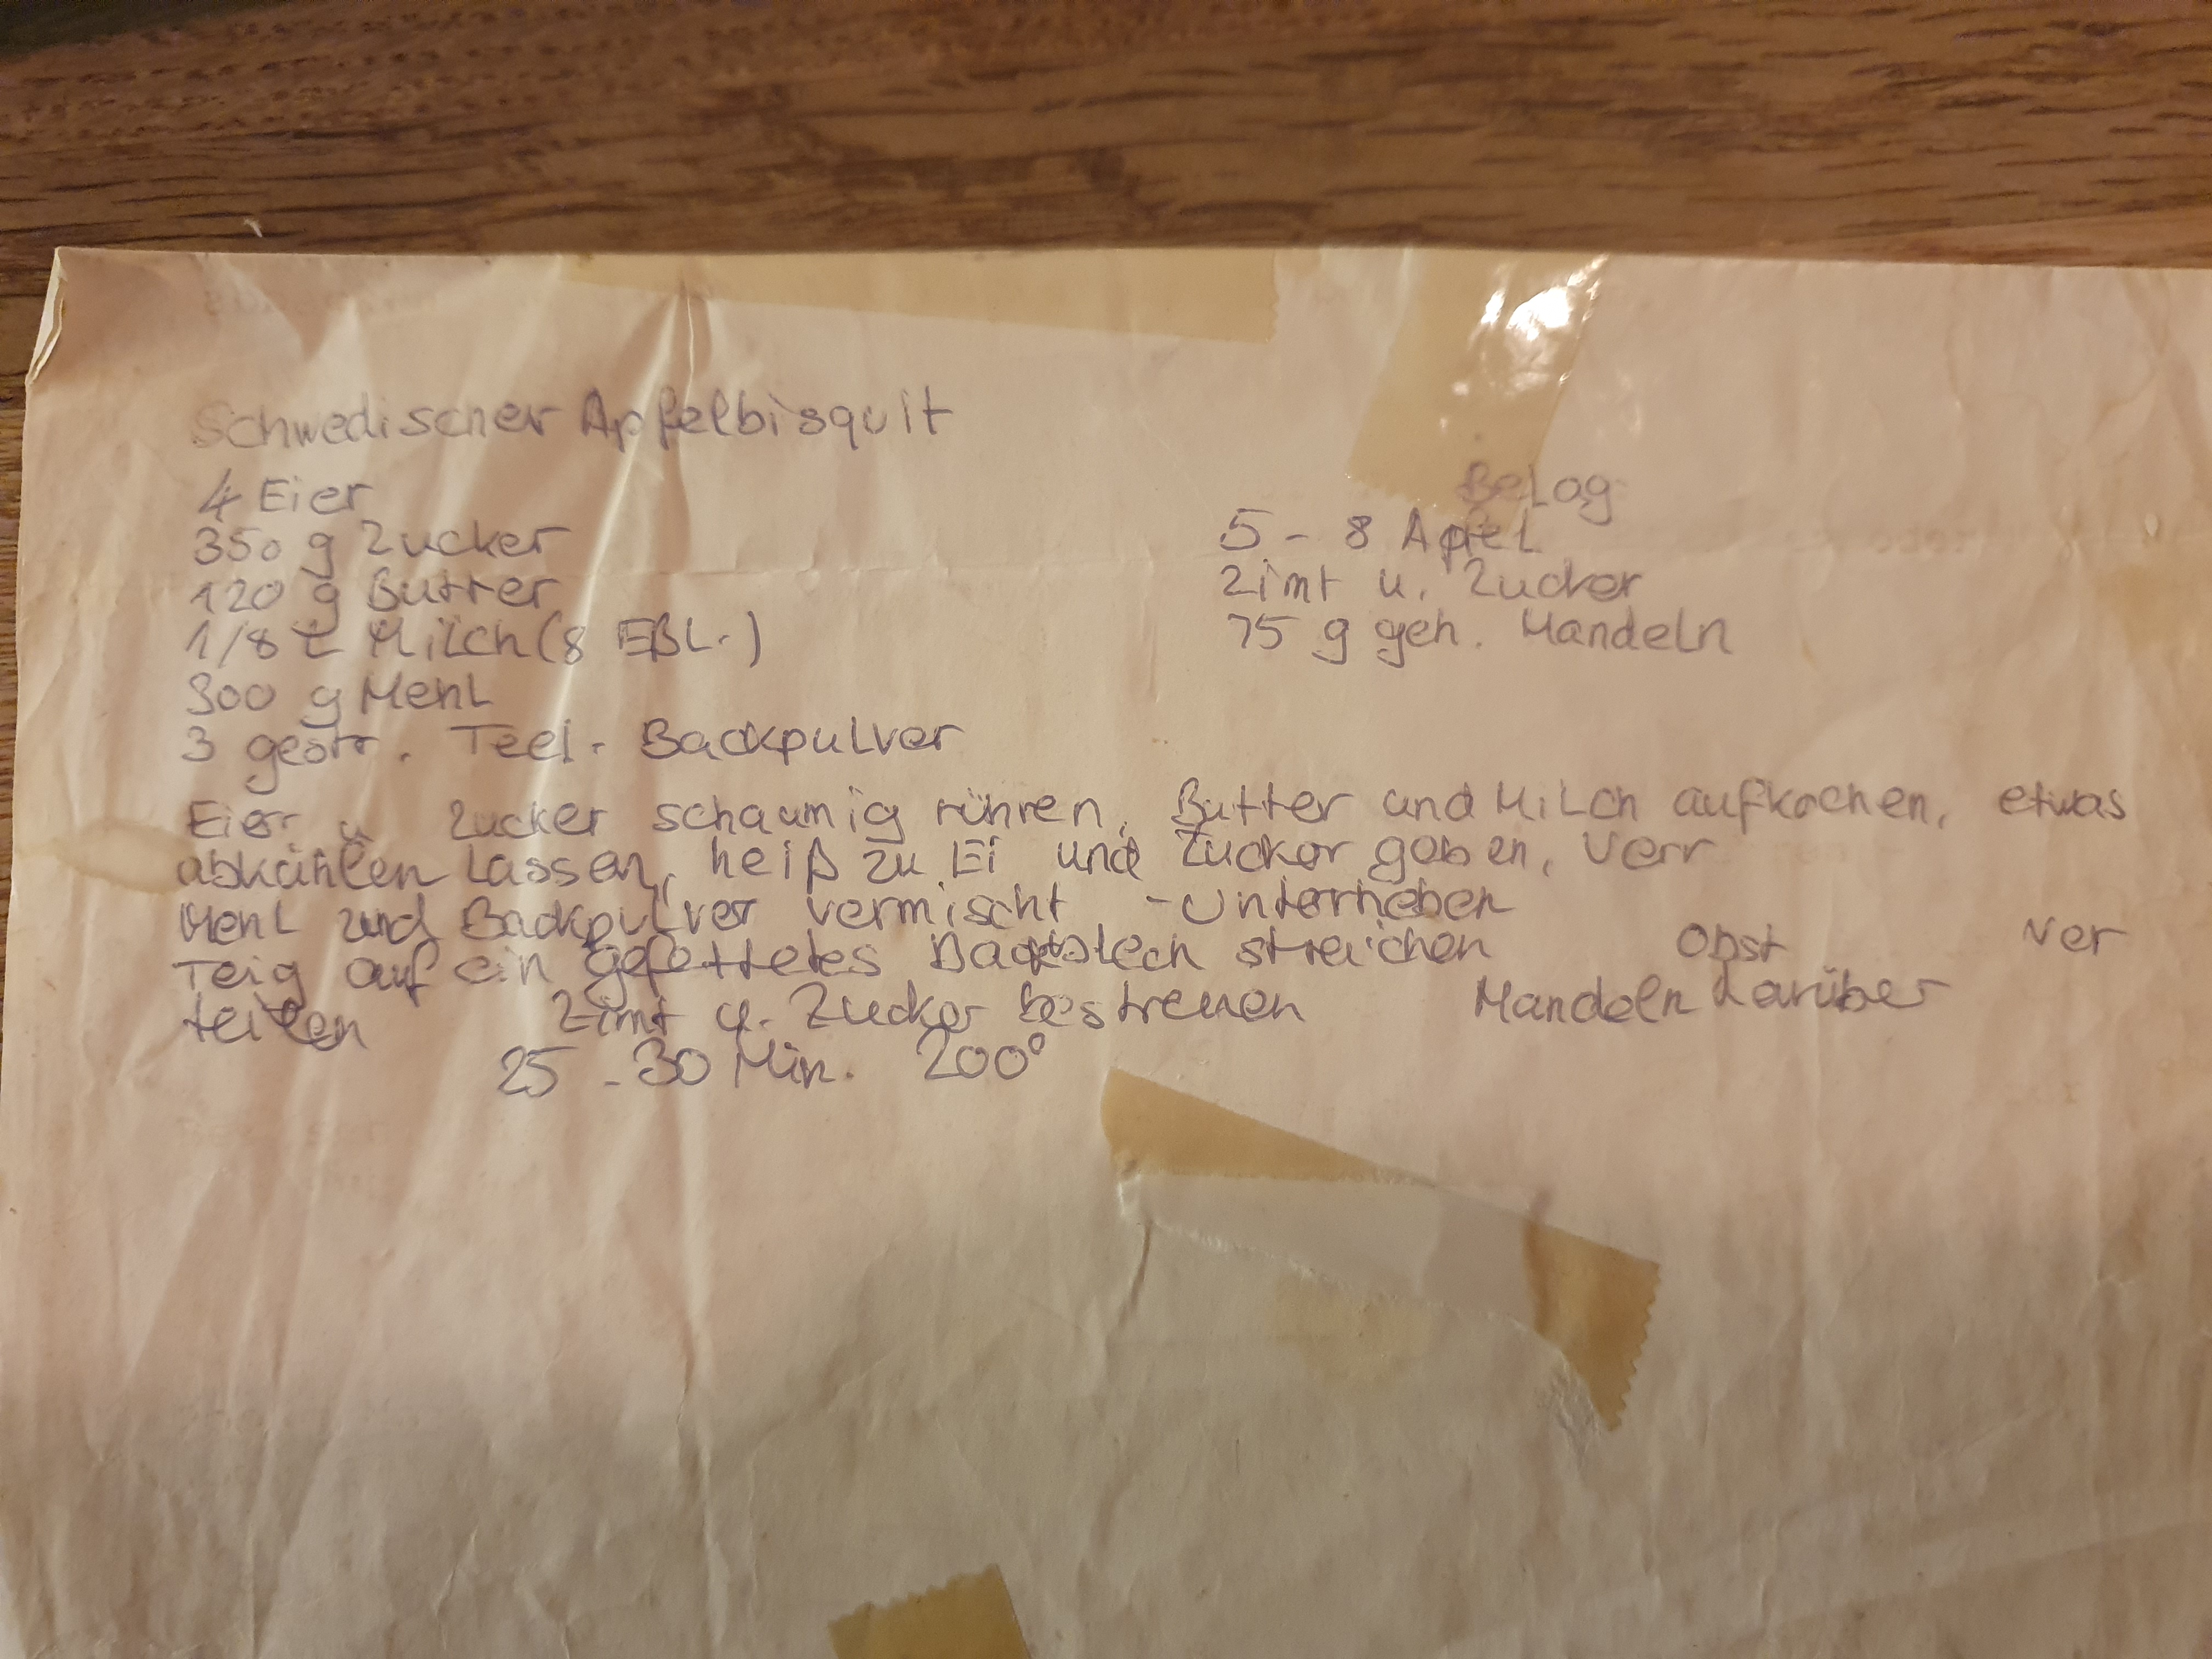 Schwedischer Apfelbisquit
4 Eier
350 g Zucker
120 g Butter
1/8 L Milch (8 EßL.)
300 g Mehl
3 gestr. Teel. Backpulver
Belag
5 - 8 Äpfel
Zimt u. Zucker
75 g geh. Mandeln
Eier u Zucker schaumig rühren, Butter und Milch aufkochen, etwas
abkühlen lassen, heiß zu Ei und Zucker geben, Verr
Mehl und Backpulver vermischt - Unterheben
Teig auf ein gefettetes Backblech streichen Obst ver
teilen Zimt u. Zucker bestreuen Mandeln darüber
25 - 30 Min. 200°